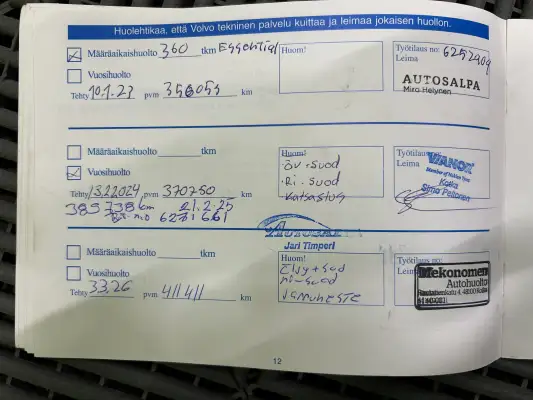 Huolehtikaa, että Volvo tekninen palvelu kuittaa ja leimaa jokaisen huollon.
Määräaikaishuolto 360 tkm Essential
Vuosihuolto
Tehty 10.1.23 pvm 356053 km
Huom!
Työtilaus no: 6252909
Leima
AUTOSALPA
Miro Helynen
Määräaikaishuolto tkm
Vuosihuolto
Tehty 13.2.2024 pvm 370750 km
385738 km 21.2.25
6271661
Huom!
öv+suod
Ri. suod
Katsastus
Työtilaus no:
WIANOR
Kotka
Simo Peltonen
AUTOSALPA
Jari Timperi
Määräaikaishuolto tkm
Vuosihuolto
Tehty 3.3.26 pvm 411411 km
Huom!
Öljy+sud
ri-suod
Jarruneste
Työtilaus no:
Leima
Mekonomen
Autohuolto
Rautatienkatu 4, 48100 Kotka
12